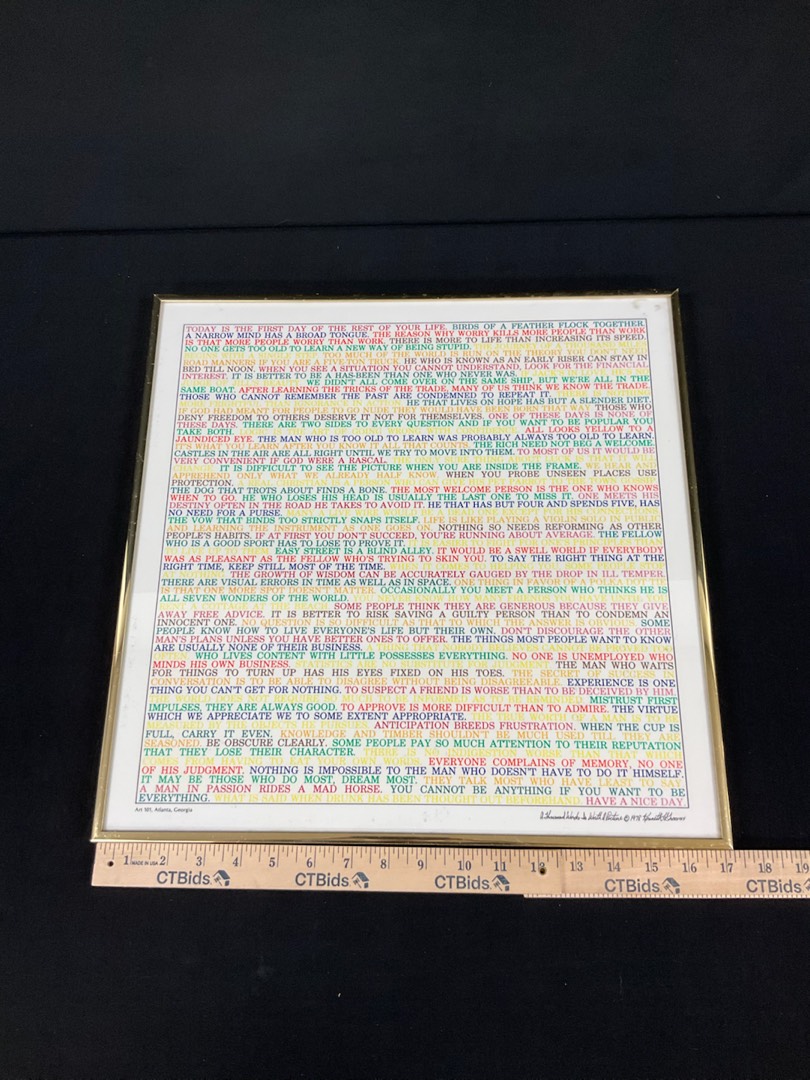 TODAY IS THE FIRST DAY OF THE REST OF YOUR LIFE. BIRDS OF A FEATHER FLOCK TOGETHER.
A NARROW MIND HAS A BROAD TONGUE. THE REASON WHY WORRY KILLS MORE PEOPLE THAN WORK
IS THAT MORE PEOPLE WORRY THAN WORK. THERE IS MORE TO LIFE THAN INCREASING ITS SPEED.
NO ONE GETS TOO OLD TO LEARN A NEW WAY OF BEING STUPID.
TOO MUCH OF THE WORLD IS RUN ON THE THEORY YOU DON'T NEED
ROAD MANNERS IF YOU ARE A FIVE-TON TRUCK. HE WHO IS KNOWN AS AN EARLY RISER CAN STAY IN
BED TILL NOON. WHEN YOU SEE A SITUATION YOU CANNOT UNDERSTAND, LOOK FOR THE FINANCIAL
INTEREST. IT IS BETTER TO BE A HAS-BEEN THAN ONE WHO NEVER WAS.
WE DIDN'T ALL COME OVER ON THE SAME SHIP, BUT WE'RE ALL IN THE
SAME BOAT. AFTER LEARNING THE TRICKS OF THE TRADE, MANY OF US THINK WE KNOW THE TRADE.
THOSE WHO CANNOT REMEMBER THE PAST ARE CONDEMNED TO REPEAT IT.
HE THAT LIVES ON HOPE HAS BUT A SLENDER DIET.
IF GOD HAD MEANT FOR PEOPLE TO GO NUDE THEY WOULD HAVE BEEN BORN THAT WAY. THOSE WHO
DENY FREEDOM TO OTHERS DESERVE IT NOT FOR THEMSELVES. ONE OF THESE DAYS IS NONE OF
THESE DAYS. THERE ARE TWO SIDES TO EVERY QUESTION AND IF YOU WANT TO BE POPULAR YOU
TAKE BOTH. ALL LOOKS YELLOW TO A
JAUNDICED EYE. THE MAN WHO IS TOO OLD TO LEARN WAS PROBABLY ALWAYS TOO OLD TO LEARN.
IT'S WHAT YOU LEARN AFTER YOU KNOW IT ALL THAT COUNTS. THE RICH NEED NOT BEG A WELCOME.
CASTLES IN THE AIR ARE ALL RIGHT UNTIL WE TRY TO MOVE INTO THEM. TO MOST OF US IT WOULD BE
VERY CONVENIENT IF GOD WERE A RASCAL.
IT IS DIFFICULT TO SEE THE PICTURE WHEN YOU ARE INSIDE THE FRAME. WE HEAR AND
APPREHEND ONLY WHAT WE ALREADY HALF KNOW. WHEN YOU PROBE UNSEEN PLACES USE
PROTECTION.
THE DOG THAT TROTS ABOUT FINDS A BONE. THE MOST WELCOME PERSON IS THE ONE WHO KNOWS
WHEN TO GO. HE WHO LOSES HIS HEAD IS USUALLY THE LAST ONE TO MISS IT. ONE MEETS HIS
DESTINY OFTEN IN THE ROAD HE TAKES TO AVOID IT. HE THAT HAS BUT FOUR AND SPENDS FIVE, HAS
NO NEED FOR A PURSE.
THE VOW THAT BINDS TOO STRICTLY SNAPS ITSELF. LIFE IS LIKE PLAYING A VIOLIN SOLO IN PUBLIC
AND LEARNING THE INSTRUMENT AS ONE GOES ON. NOTHING SO NEEDS REFORMING AS OTHER
PEOPLE'S HABITS. IF AT FIRST YOU DON'T SUCCEED, YOU'RE RUNNING ABOUT AVERAGE. THE FELLOW
WHO IS A GOOD SPORT HAS TO LOSE TO PROVE IT.
EASY STREET IS A BLIND ALLEY. IT WOULD BE A SWELL WORLD IF EVERYBODY
WAS AS PLEASANT AS THE FELLOW WHO'S TRYING TO SKIN YOU. TO SAY THE RIGHT THING AT THE
RIGHT TIME, KEEP STILL MOST OF THE TIME.
THE GROWTH OF WISDOM CAN BE ACCURATELY GAUGED BY THE DROP IN ILL TEMPER.
THERE ARE VISUAL ERRORS IN TIME AS WELL AS IN SPACE. ONE THING IN FAVOR OF A POLKA DOT TIE
IS THAT ONE MORE SPOT DOESN'T MATTER. OCCASIONALLY YOU MEET A PERSON WHO THINKS HE IS
ALL SEVEN WONDERS OF THE WORLD.
SOME PEOPLE THINK THEY ARE GENEROUS BECAUSE THEY GIVE
AWAY FREE ADVICE. IT IS BETTER TO RISK SAVING A GUILTY PERSON THAN TO CONDEMN AN
INNOCENT ONE. NO QUESTION IS SO DIFFICULT AS THAT TO WHICH THE ANSWER IS OBVIOUS. SOME
PEOPLE KNOW HOW TO LIVE EVERYONE'S LIFE BUT THEIR OWN. DON'T DISCOURAGE THE OTHER
MAN'S PLANS UNLESS YOU HAVE BETTER ONES TO OFFER. THE THINGS MOST PEOPLE WANT TO KNOW
ARE USUALLY NONE OF THEIR BUSINESS.
WHO LIVES CONTENT WITH LITTLE POSSESSES EVERYTHING. NO ONE IS UNEMPLOYED WHO
MINDS HIS OWN BUSINESS. STATISTICS ARE NO SUBSTITUTE FOR JUDGMENT. THE MAN WHO WAITS
FOR THINGS TO TURN UP HAS HIS EYES FIXED ON HIS TOES. THE SECRET OF SUCCESS IN
CONVERSATION IS TO BE ABLE TO DISAGREE WITHOUT BEING DISAGREEABLE. EXPERIENCE IS ONE
THING YOU CAN'T GET FOR NOTHING. TO SUSPECT A FRIEND IS WORSE THAN TO BE DECEIVED BY HIM.
MISTRUST FIRST
IMPULSES, THEY ARE ALWAYS GOOD. TO APPROVE IS MORE DIFFICULT THAN TO ADMIRE. THE VIRTUE
WHICH WE APPRECIATE WE TO SOME EXTENT APPROPRIATE. THE TRUE WORTH OF A MAN IS TO BE
MEASURED BY THE OBJECTS HE PURSUES. ANTICIPATION BREEDS FRUSTRATION. WHEN THE CUP IS
FULL, CARRY IT EVEN. KNOWLEDGE AND TIMBER SHOULDN'T BE MUCH USED TILL THEY ARE
SEASONED. BE OBSCURE CLEARLY. SOME PEOPLE PAY SO MUCH ATTENTION TO THEIR REPUTATION
THAT THEY LOSE THEIR CHARACTER. THERE IS NO INDIGESTION WORSE THAN THAT WHICH
COMES FROM HAVING TO EAT YOUR OWN WORDS. EVERYONE COMPLAINS OF MEMORY, NO ONE
OF HIS JUDGMENT. NOTHING IS IMPOSSIBLE TO THE MAN WHO DOESN'T HAVE TO DO IT HIMSELF.
IT MAY BE THOSE WHO DO MOST, DREAM MOST. THEY TALK MOST WHO HAVE LEAST TO SAY.
A MAN IN PASSION RIDES A MAD HORSE. YOU CANNOT BE ANYTHING IF YOU WANT TO BE
EVERYTHING. WHAT IS SAID WHEN DRUNK HAS BEEN THOUGHT OUT BEFOREHAND. HAVE A NICE DAY.
Art 101, Atlanta, Georgia
A Thousand Words Is Worth A Picture © 1978
1 MADE IN USA 2 3 4 5 6 7 8 9 10 11 12 13 14 15 16 17 18 19
CTBids CTBids CTBids CTBids CTBids